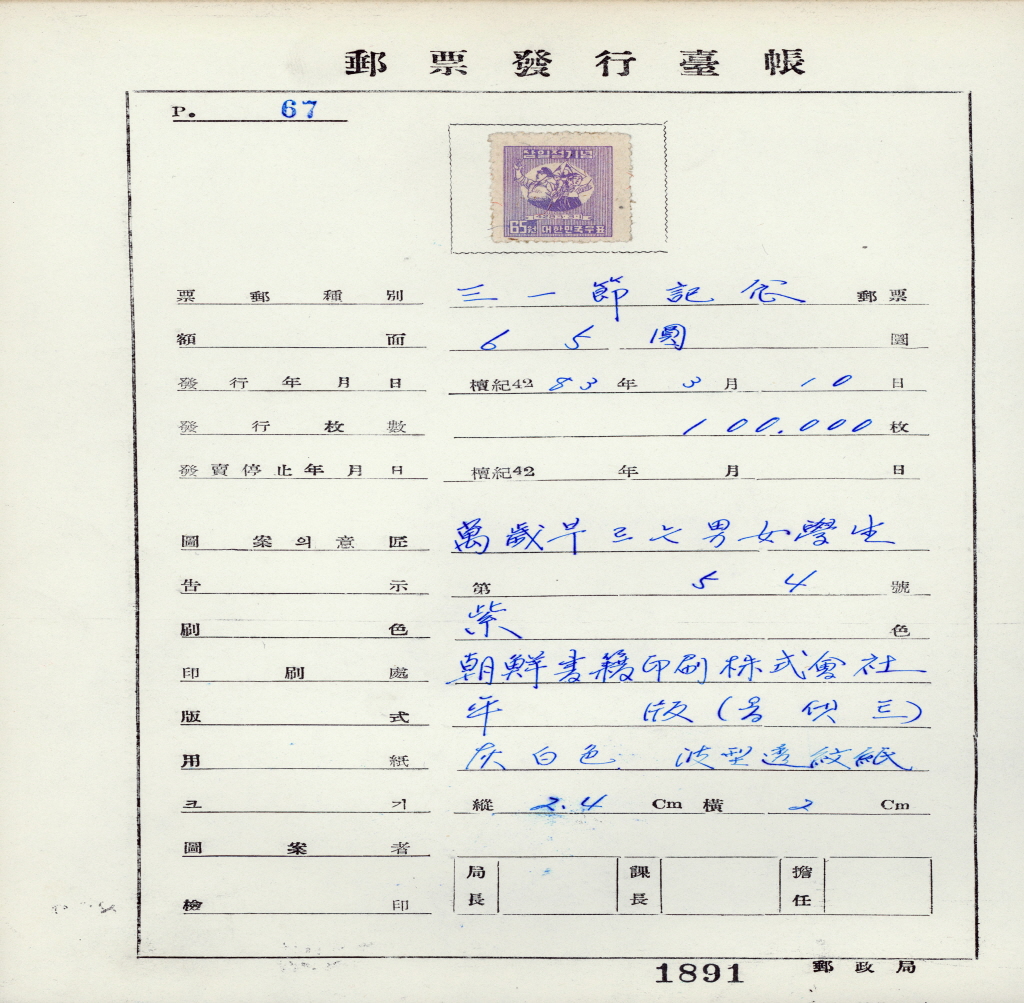 郵票發行臺帳
P. 67
삼일절기념
4283.3.1
65원 대한민국우표
票郵種別 三一節記念 郵票
額面 65圓 圜
發行年月日 檀紀4283年 3月 10日
發行枚數 100.000枚
發賣停止年月日 檀紀42 年 月 日
圖案의意匠 萬歲부르는男女學生
告示 第 54 號
刷色 紫 色
印刷處 朝鮮書籍印刷株式會社
版式 平 版
用紙 灰白色 波型透紋紙
크기 縱 2.4 Cm 橫 2 Cm
圖案者
檢印 局長 課長 擔任
1891 郵政局